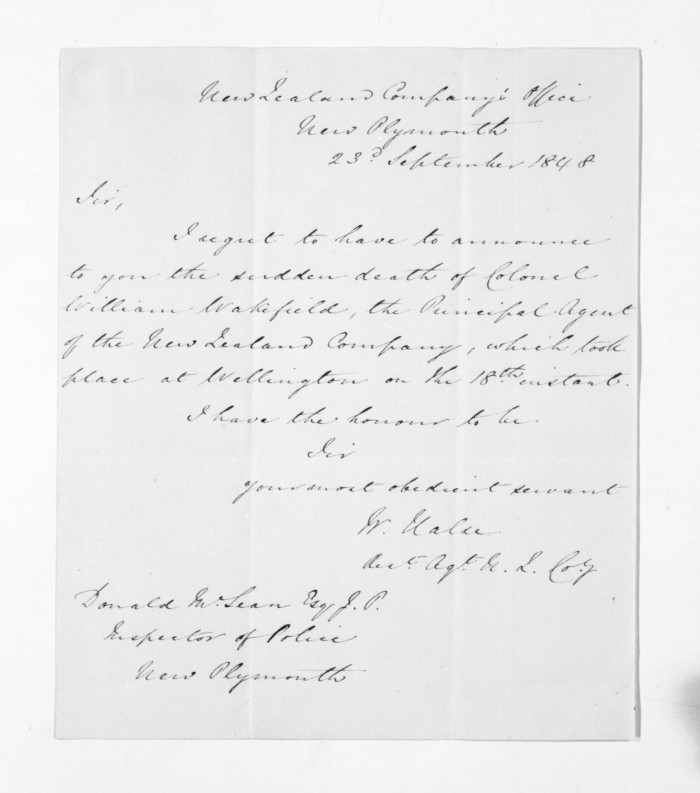 New Zealand Company's Office
New Plymouth
23d. September 1848
Sir,
I regret to have to announce
to you the sudden death of Colonel
William Wakefield, the Principal Agent
of the New Zealand Company, which took
place at Wellington on the 18th instant.
I have the honour to be
Sir
your most obedient servant
W. Halse
Agt. N. Z. Coy
Donald McLean Esq J.P.
Inspector of Police
New Plymouth